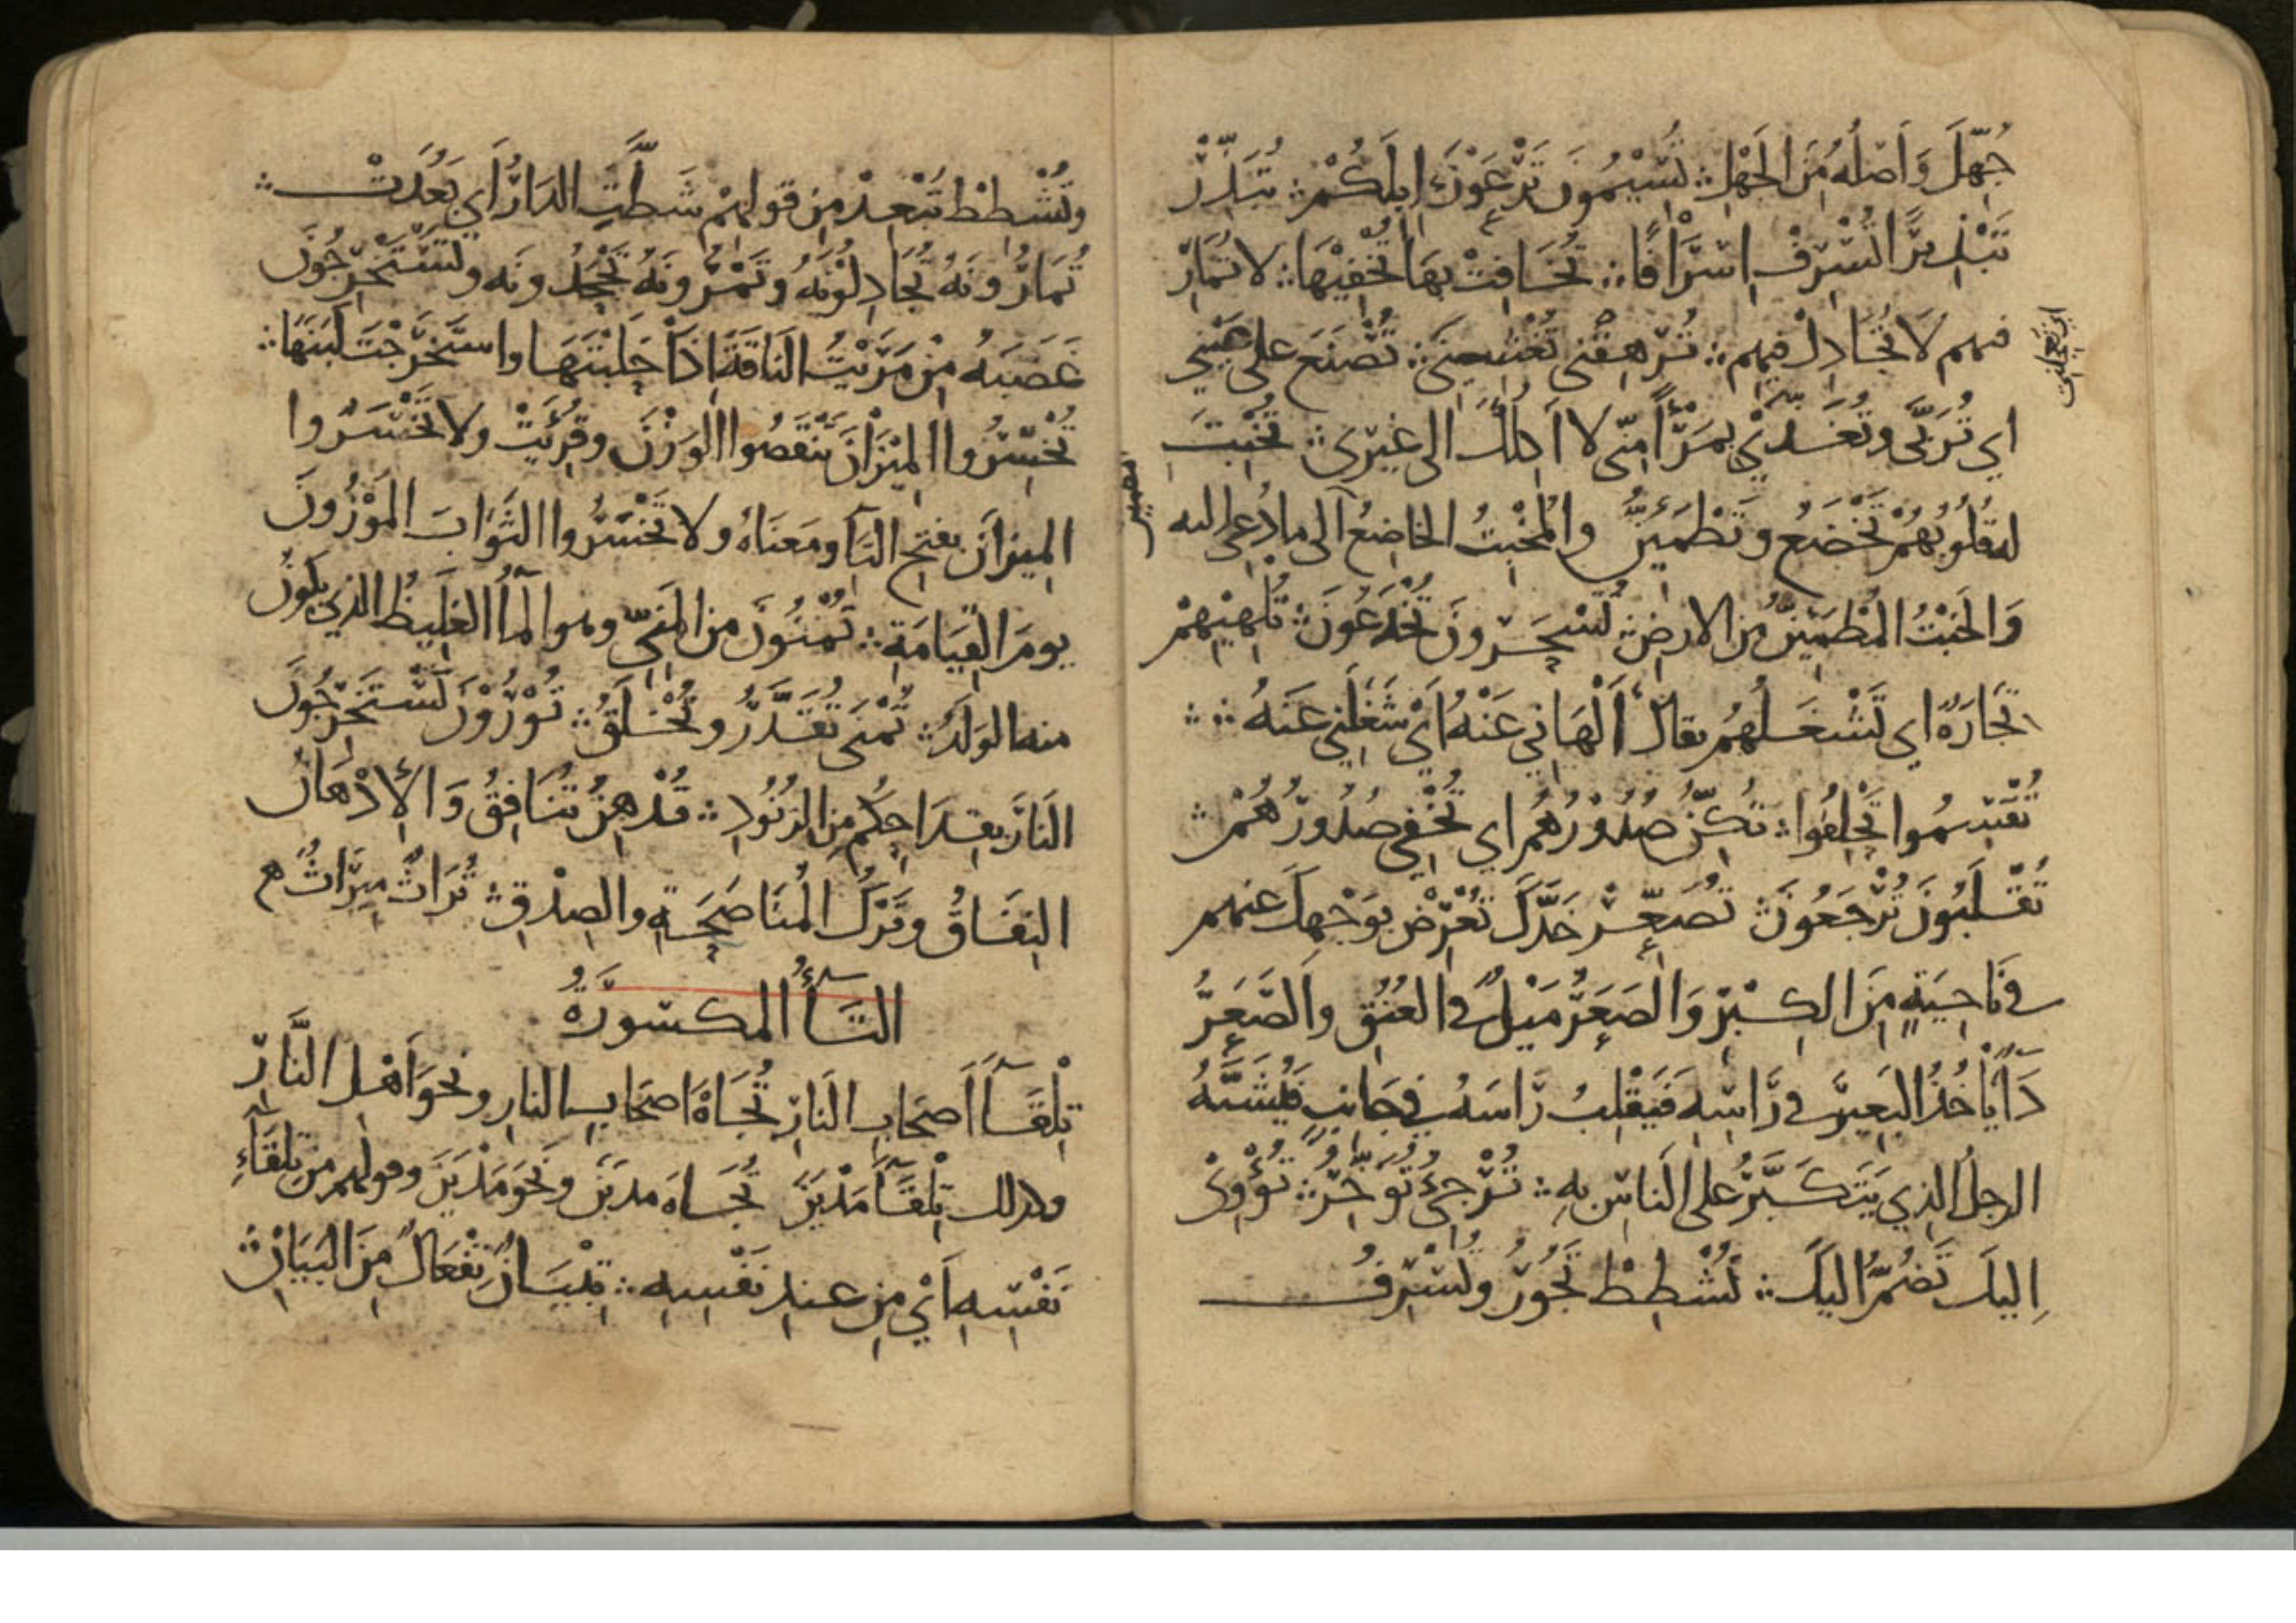 جُهّلَ وَاَصْلُهُ مِنَ الجَهْلِ ؞ تُسِيْمُونَ تَرْعَوْنَ اِبِلَكُمْ ؞ تُبَذِّرْ
تَبْذِيرًا تُسْرِفْ اِسْرَافًا ؞ تُخَافِتْ بِهَا تُخْفِيْهَا ؞ لا تُمَارِ
فيهم لَا تُجَادِلْ فيهم ؞ تُرْهِقْني تُغْشِينى ؞ تُصْنَعَ على عَيْنِي
اي تُرَبَّى وتُغَذّي بِمَرْأًى مِنّى لا اَكِلُكَ الى غيْرى ؞ تُخْبِتَ
له قُلُوبُهُمْ تَخْضَعُ وتَطْمَئِنُّ والمُخْبِتُ الخاضِعُ الى ما دُعى اليه
وَالخَبْتُ المُطْمَئِنُّ مِن الارضِ ؞ تُسْحَرُونَ تُخْدَعُونَ ؞ تُلْهِيْهِمْ
تِجَارَةٌ اي تَشْغَلُهُم يقالُ اَلْهَانِي عَنْهُ اَيْ شَغَلَنِي عَنْهُ ؞ ؞
تُقْسِمُوا تَحْلِفُوا ؞ تُكِنُّ صُدُوْرُهُم اي تُخْفِي صُدُورُهُمْ ؞
تُقْلَبُونَ تُرْجَعُونَ ؞ تُصَعِّرْ خَدَّكَ تُعْرِضْ بوَجْهِكَ عنهم
في نَاحِيَةٍ مِنَ الكِبْرِ وَالصَعَرُ مَيْلٌ في العُنُقِ والصَّعَرُ
دَاءٌ يَأخُذُ البَعِيرَ في رَأسِهِ فَيَقْلِبُ رَأسَهُ في جَانِبٍ فَيُشَبَّهُ
الرجلُ الذِي يَتَكَبَّرُ على النَاسِ بِهِ ؞ تُرْجِئُ تُؤَخِّرُ ؞ تُؤْوِىْ
اِليكَ تَضُمُّ اليكَ ؞ تُشْطِطْ تَجُوْرُ وتُسْرِفُ
ابن عجلنت
وتُشْطِطْ تُبْعِدْ مِن قولِهِمْ شَطَّتِ الدَارُ اَي بَعُدَتْ ؞
تُمَارُونَهُ تُجَادِلُونَهُ وتَمْرُونَهُ تَجْحَدُونَه وتَسْتَخْرِجُونَ
غَضَبَهُ مِنْ مَرَيْتُ النَاقَةَ اِذَا حَلَبْتَهَا واستَخْرَجْتَ لَبَنَهَا ؞
تُخْسِرُوا المِيْزَانَ تَنْقُصُوا الوَزْنَ وقُرِئَتْ ولا تَخْسَرُوا
المِيزانَ بفتحِ التاءِ ومَعنَاهُ ولا تَخْسَرُوا الثَوابَ المَوْزُونَ
يومَ القِيَامَةِ ؞ تُمْنُونَ من المَنِيِّ وهو المآءُ الغَلِيظُ الذي يكونُ
منه الوَلَدُ ؞ تُمْنَى تُقَدَّرُ وتُخْلَقُ ؞ تُوْرُوْنَ تَسْتَخْرِجُونَ
النَارَ بقِدَاحِكُم مِنَ الزنُودِ ؞ تُدْهِنُ تُنَافِقُ وَالإِدْهَانُ
النِفَاقُ وتَرْكُ المُنَاصَحَةِ والصِدْقِ ؞ تُرَاثٌ مِيرَاثٌ ه
التَاءُ المكسُورَةُ
تِلْقَآءَ اَصحَابِ النَارِ تُجَاهَ اَصحَابِ النارِ ونحوَ اَهْلِ النَّارِ
وكذلك تِلْقَآءَ مَدْيَنَ تُجَاهَ مدينَ ونَحوَ مَدْيَنَ وقولهم من تِلقَآءِ
نَفْسِهِ اَيْ مِن عندِ نَفْسِهِ ؞ تِبْيَانٌ تِفْعَالٌ مِنَ البَيَانِ ؞